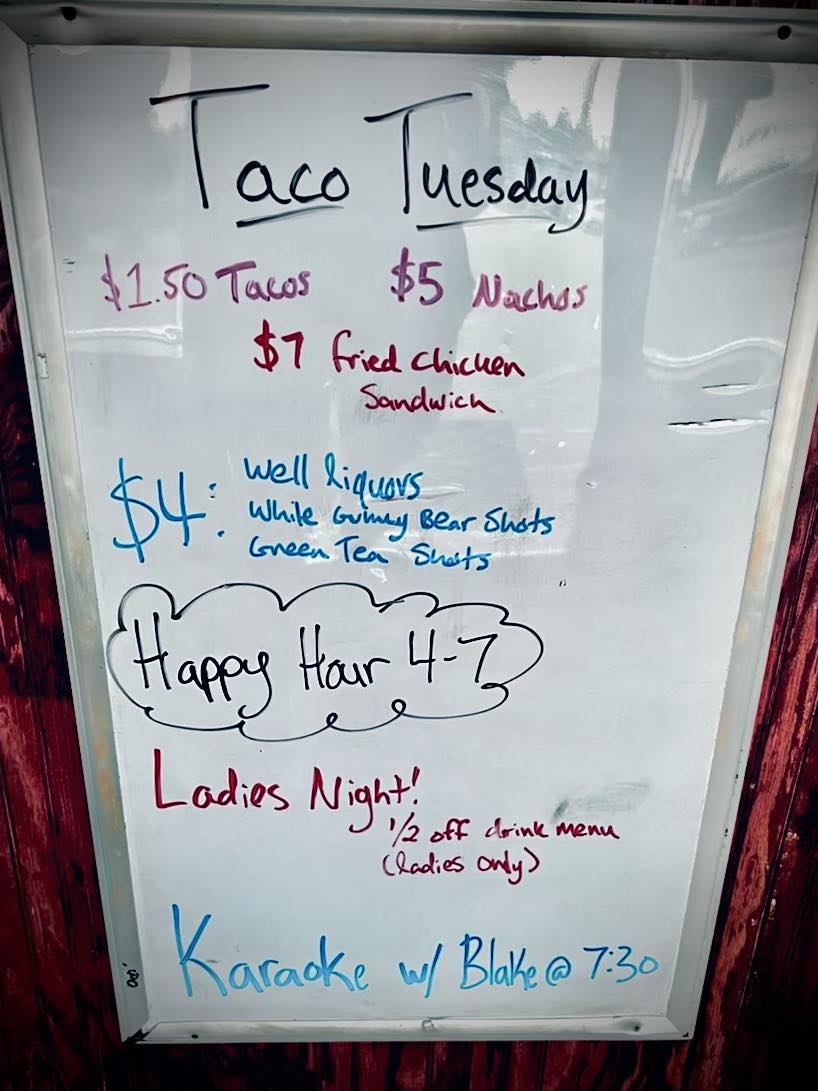 Taco Tuesday
$1.50 Tacos $5 Nachos
$7 fried chicken
Sandwich
$4: well liquors
While Gummy Bear Shots
Green Tea Shots
Happy Hour 4-7
Ladies Night!
1/2 off drink menu
(ladies only)
Karaoke w/ Blake @ 7:30